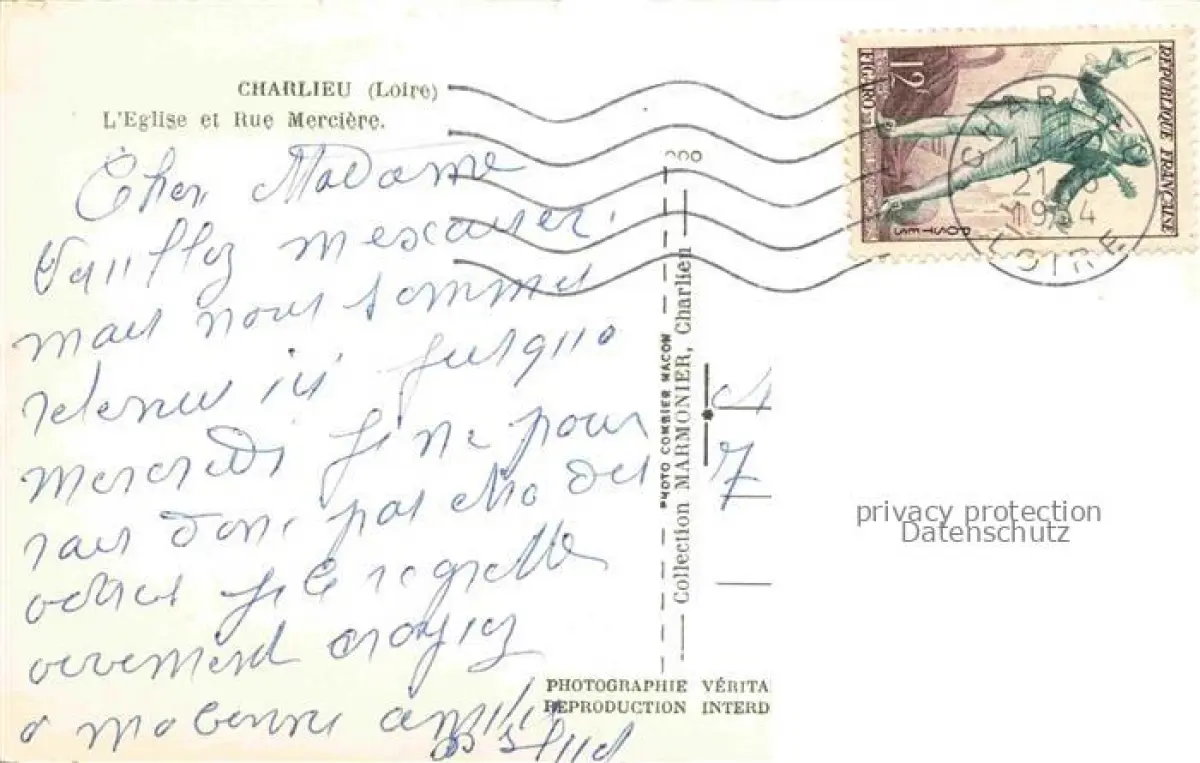 CHARLIEU (Loire)
L'Eglise et Rue Mercière.
Cher Madame
Veuillez mexcuser,
mais nous sommes
retenus ici jusquo
mercredi je ne pour
rais donc pas etre des
votres je le regrette
vivement croyez
a ma bonne amitié
PHOTO COMBIER MACON
Collection MARMONIER, Charlieu
PHOTOGRAPHIE VÉRITA
REPRODUCTION INTERD
12F
FIGARO
REPUBLIQUE FRANÇAISE
POSTES
LOIRE
7
privacy protection
Datenschutz